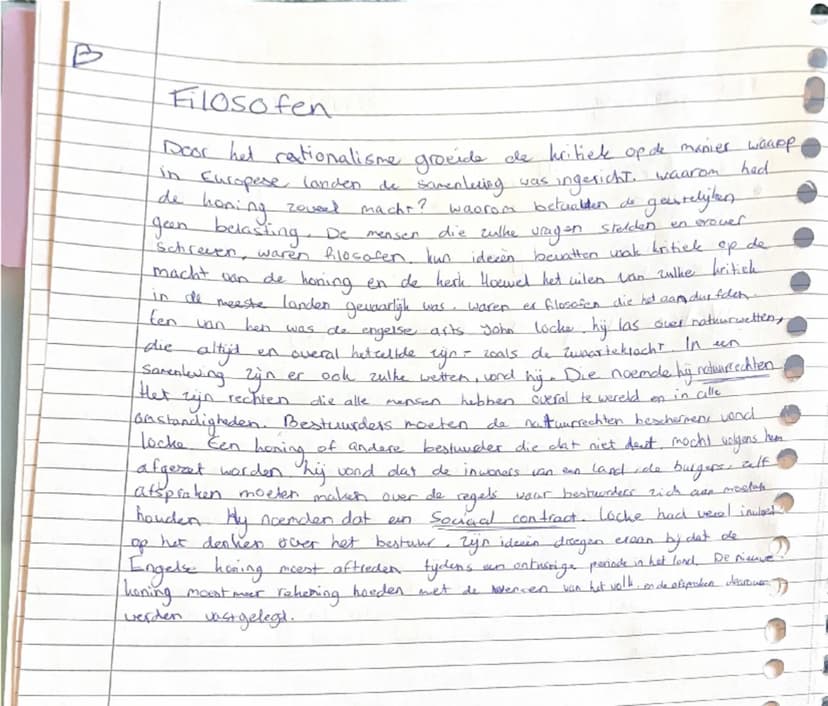 B
Filosofen
Door het rationalisme groeide de kritiek op de manier waarop
in Europese landen de samenleving was ingericht. waarom had
de koning zoveel macht? waarom betaalden de geestelijken
geen belasting. De mensen die zulke vragen stelden en erover
schreven, waren filosofen. hun ideeën bevatten vaak kritiek op de
macht van de koning en de kerk Hoewel het uiten van zulke kritiek
in de meeste landen gevaarlijk was. waren er filosofen die het aandurfden.
Een van hen was de engelse arts John locke. hij las over natuurwetten,
die altijd en overal hetzelfde zijn - zoals de zwaartekracht In een
samenleving zijn er ook zulke wetten, vond hij. Die noemde hij natuurrechten
Het zijn rechten die alle mensen hebben overal te wereld en in alle
omstandigheden. Bestuurders moeten de natuurrechten beschermen, vond
locke Een koning of andere bestuurder die dat niet deed, mocht volgens hem
afgezet worden hij vond dat de inwoners van een land, de burgers, zelf
afspraken moeten maken over de regels waar bestuurders zich aan moeten
houden Hij noemden dat een Sociaal contract. locke had veel invloed
op het denken over het bestuur. zijn ideeën droegen eraan bij dat de
Engelse koning moest aftreden tijdens een onrustige periode in het land. De nieuwe
koning moest meer rekening houden met de wensen van het volk. en de afspraken daarover
werden vastgelegd.